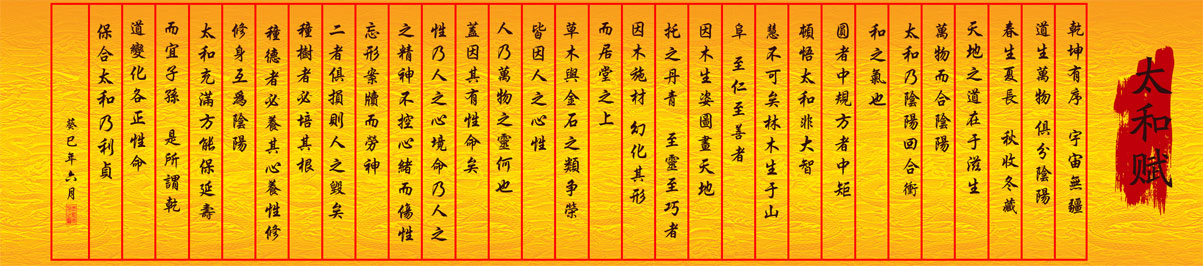 太和赋
乾坤有序 宇宙無疆
道生萬物 俱分陰陽
春生夏長 秋收冬藏
天地之道在于滋生
萬物而合陰陽
太和乃陰陽回合衝
和之氣也
圓者中規方者中矩
頓悟太和非大智
慧不可矣林木生于山
阜 至仁至善者
因木生姿圖畫天地
托之丹青 至靈至巧者
因木施材 幻化其形
而居堂之上
草木與金石之類爭榮
皆因人之心性
人乃萬物之靈何也
蓋因其有性命矣
性乃人之心境命乃人之
之精神不控心緒而傷性
忘形案牘而勞神
二者俱損則人之毀矣
種樹者必培其根
種德者必養其心養性修
修身互爲陰陽
太和充滿方能保延壽
而宜子孫 是所謂乾
道變化各正性命
保合太和乃利貞
癸巳年六月